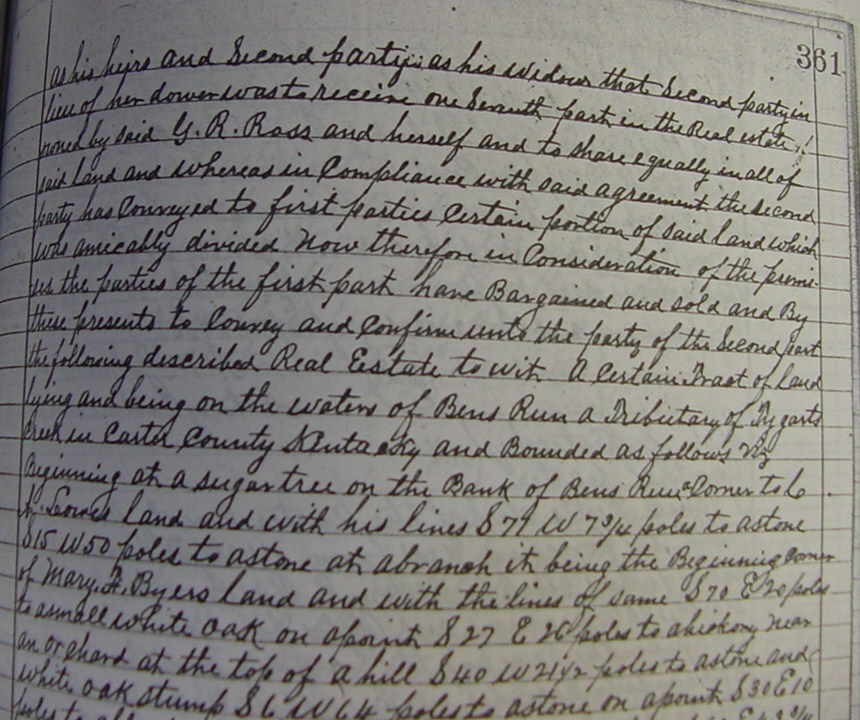 361
as his heirs and Second party as his widow that Second party in
lieu of her dower was to receive one Seventh part in the Real estate
owned by said G. R. Ross and herself and to share equally in all of
said land and whereas in Compliance with said agreement the second
party has Conveyed to first parties Certain portion of said land which
was amicably divided Now therefore in Consideration of the premi-
ses the parties of the first part have Bargained and sold and By
these presents to Convey and Confirm unto the party of the Second part
the following described Real Eestate to wit A Certain Tract of land
lying and being on the waters of Bens Run a Tributary of Tygarts
Creek in Carter County Kentucky and Bounded as follows Viz
Beginning at a sugar tree on the Bank of Bens Run a Corner to
land and with his lines S 77 W 7 3/4 poles to a stone
S 15 W 50 poles to a stone at a branch it being the Beginning Corner
of Mary F. Byers land and with the lines of same S 70 E 20 poles
to a small white oak on a point S 27 E 26 poles to a hickory near
an orchard at the top of a hill S 40 W 21 1/2 poles to a stone and
white oak stump S 6 W 64 poles to a stone on a point S 30 E 10
poles to